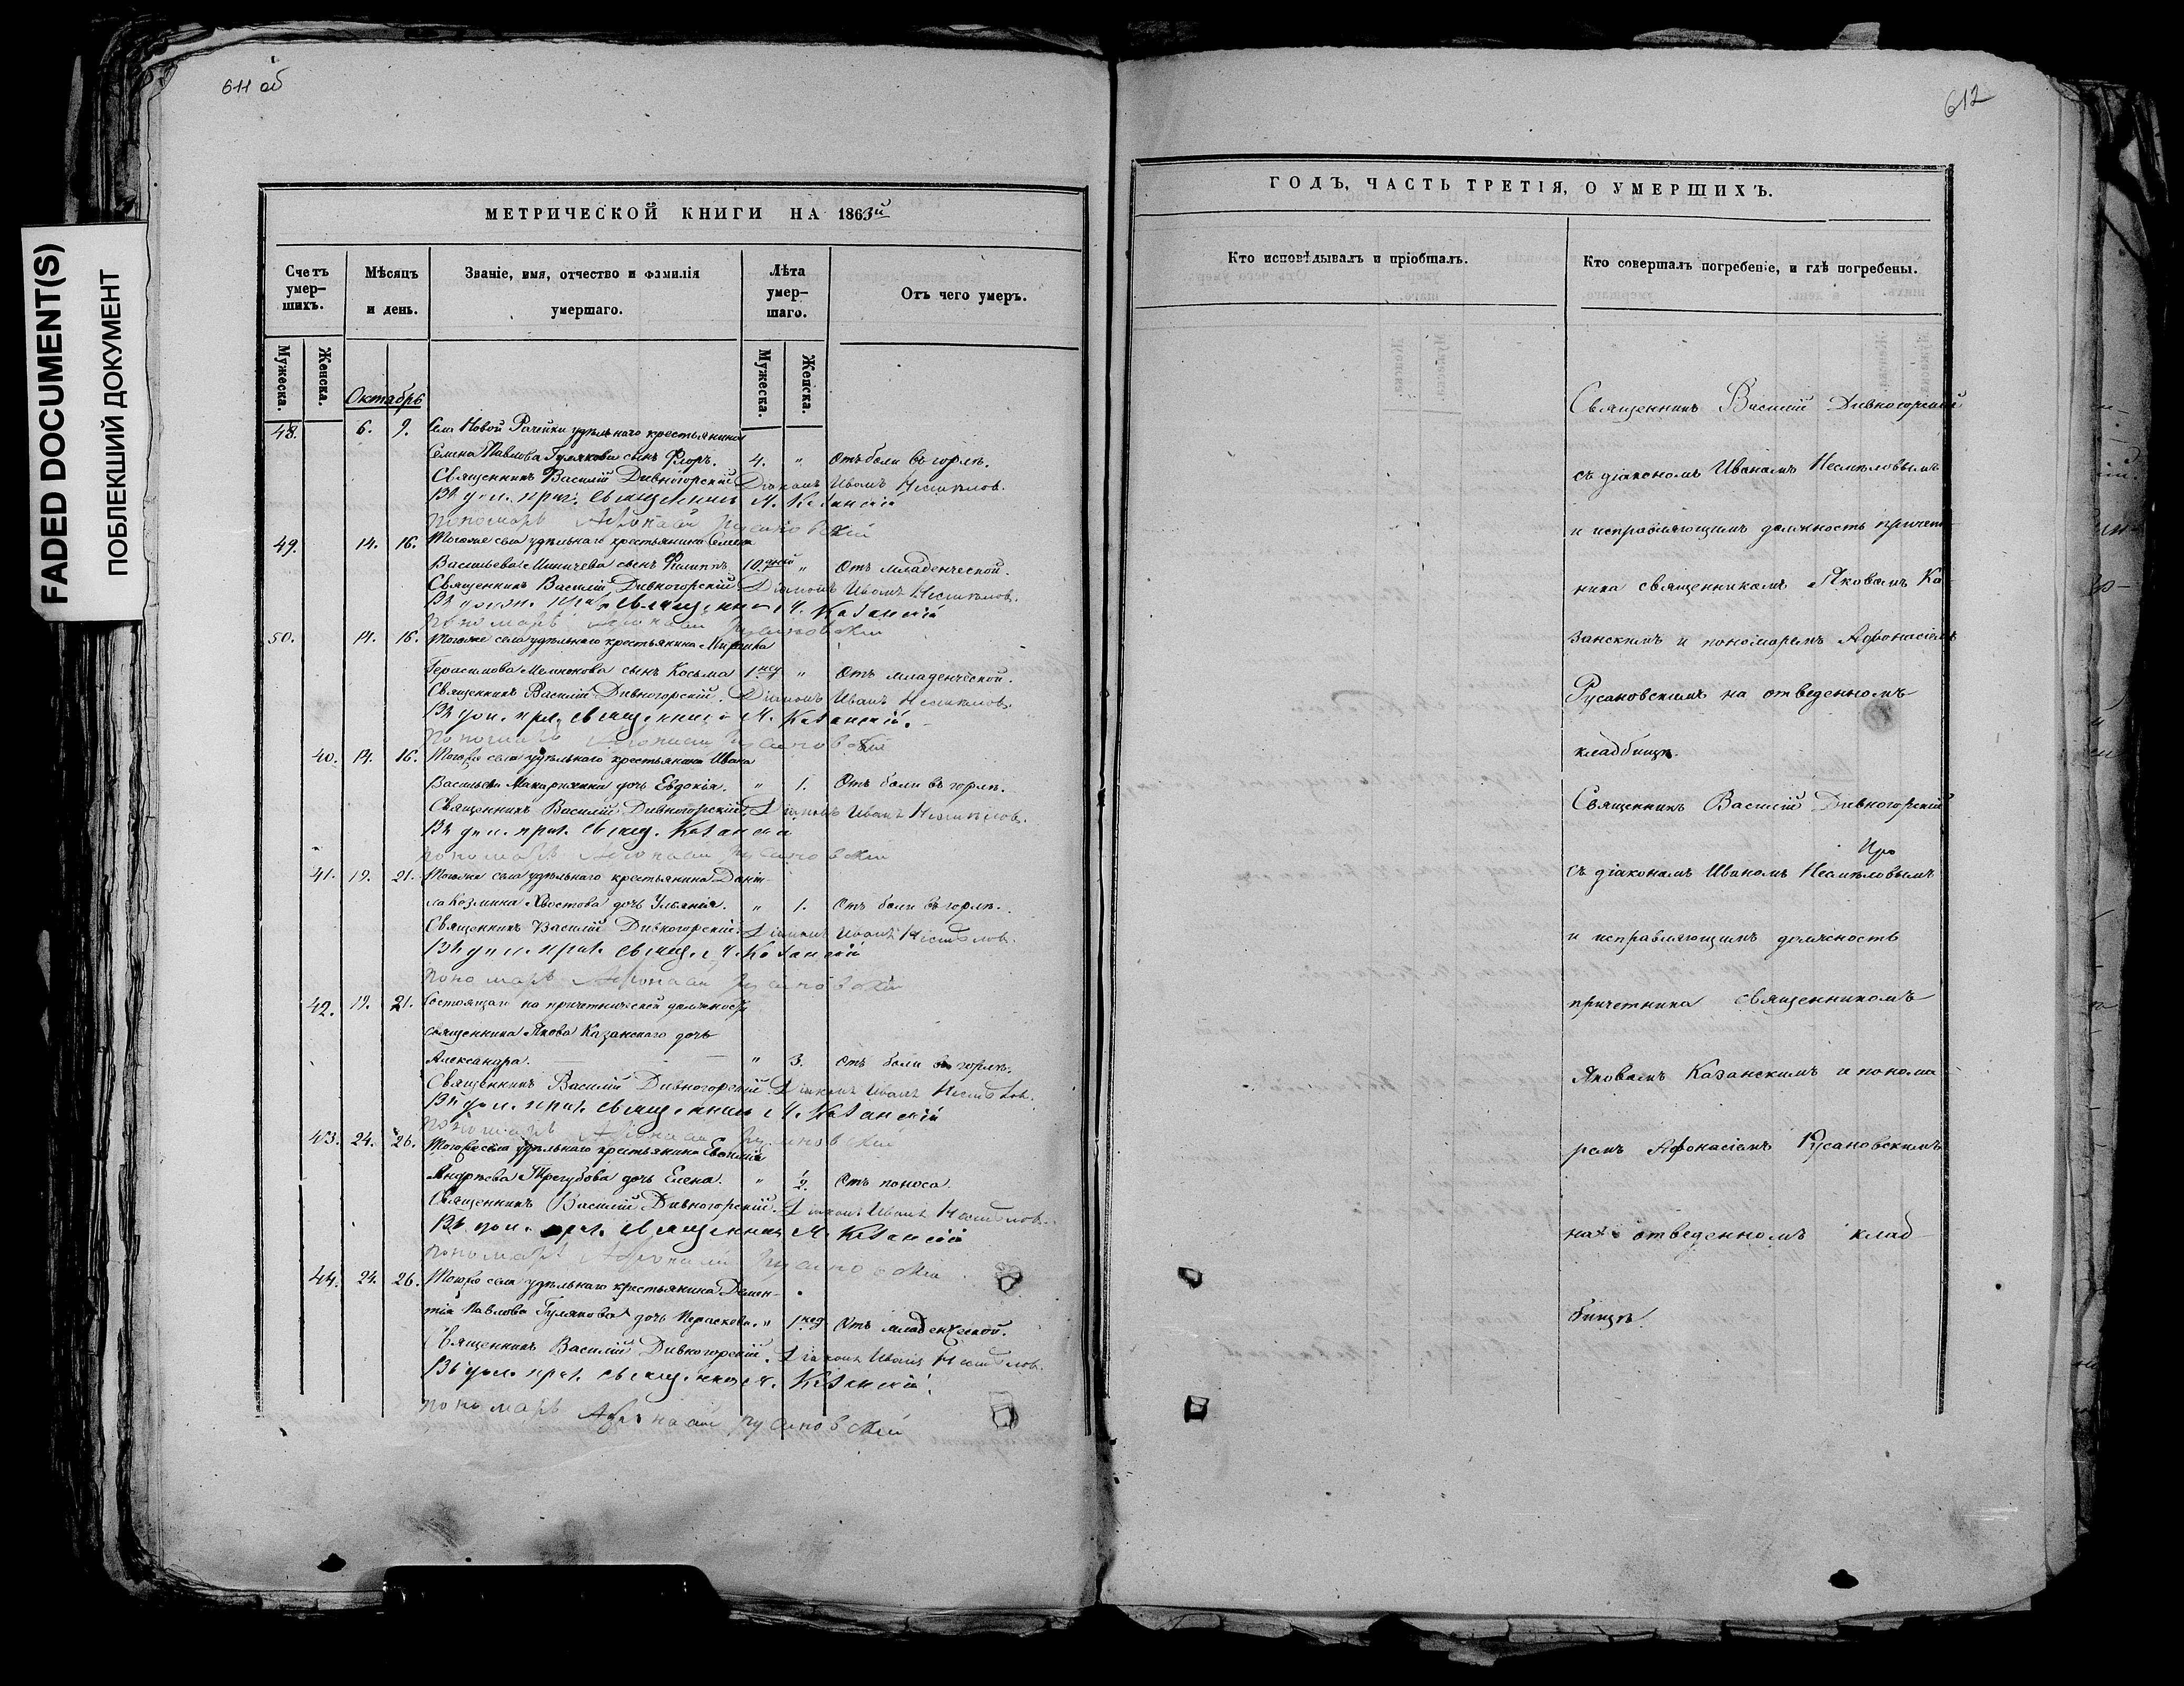 611 об
612
FADED DOCUMENT(S)
ПОБЛЕКШИЙ ДОКУМЕНТ
МЕТРИЧЕСКОЙ КНИГИ НА 1863й
Счетъ умер-шихъ.
Мѣсяцъ и день.
Званіе, имя, отчество и фамилія умершаго.
Лѣта умер-шаго.
Отъ чего умеръ.
Мужеска. Женска.
Мужеска. Женска.
Октябрь
48. 6. 9. Села Новой Рачейки удѣльнаго крестьянина
Семена Павлова Гулякова сынъ Флоръ. 4. " Отъ боли въ горлѣ.
Священникъ Василій Дивногорскій Діаконъ Иванъ Несмѣловъ.
Въ дол. прич. священникъ Я. Казанскій
Пономарь Афонасій Русановскій
49. 14. 16. Тогоже села удѣльнаго крестьянина Семена
Васильева Миничева сынъ Филиппъ. 10. дней " Отъ младенческой.
Священникъ Василій Дивногорскій Діаконъ Иванъ Несмѣловъ.
Въ долж. прич. священникъ Я. Казанскій
Пономарь Афонасій Русановскій
50. 14. 16. Тогоже села удѣльнаго крестьянина Мирона
Герасимова Мелюкова сынъ Косьма 1 нед " Отъ младенческой.
Священникъ Василій Дивногорскій. Діаконъ Иванъ Несмѣловъ.
Въ дол. прич. священникъ Я. Казанскій.
Пономарь Афонасій Русановскій
40. 14. 16. Тогоже села удѣльнаго крестьянина Ивана
Васильева Макарихина дочь Евдокія. " 1. Отъ боли въ горлѣ.
Священникъ Василій Дивногорскій. Діаконъ Иванъ Несмѣловъ.
Въ дол. прич. свящ. Казанскій
Пономарь Афонасій Русановскій
41. 19. 21. Тогоже села удѣльнаго крестьянина Дани-
ла Козмина Хвостова дочь Ульянія. " 1. Отъ боли въ горлѣ.
Священникъ Василій Дивногорскій. Діаконъ Иванъ Несмѣловъ.
Въ дол. прич. свящ. Я. Казанскій
Пономарь Афонасій Русановскій
42. 19. 21. Состоящаго на причетнической должности
священника Якова Казанскаго дочь
Александра. " 3. Отъ боли въ горлѣ.
Священникъ Василій Дивногорскій. Діаконъ Иванъ Несмѣловъ.
Въ дол. прич. священникъ Я. Казанскій
Пономарь Афонасій Русановскій
43. 24. 26. Тогоже села удѣльнаго крестьянина Евфимія
Андреева Трегубова дочь Елена. " 1/2. Отъ поноса.
Священникъ Василій Дивногорскій. Діаконъ Иванъ Несмѣловъ.
Въ дол. прич. священникъ Я. Казанскій
Пономарь Афонасій Русановскій
44. 24. 26. Тогоже села удѣльнаго крестьянина Демен-
тія Павлова Гулякова дочь Параскева. " 1 нед. Отъ младенческой.
Священникъ Василій Дивногорскій. Діаконъ Иванъ Несмѣловъ.
Въ дол. прич. священникъ Я. Казанскій.
Пономарь Афонасій Русановскій
ГОДЪ, ЧАСТЬ ТРЕТІЯ, О УМЕРШИХЪ.
Кто исповѣдывалъ и пріобщалъ.
Кто совершалъ погребеніе, и гдѣ погребены.
Священникъ Василій Дивногорскій
съ діакономъ Иваномъ Несмѣловымъ
и исправляющимъ должность причет-
ника священникомъ Яковомъ Ка-
занскимъ и пономаремъ Афонасіемъ
Русановскимъ на отведенномъ
кладбищѣ.
Священникъ Василій Дивногорскій
съ діакономъ Иваномъ Несмѣловымъ
и исправляющимъ должность
причетника священникомъ
Яковомъ Казанскимъ и понома
ремъ Афонасіемъ Русановскимъ
на отведенномъ клад
бищѣ.